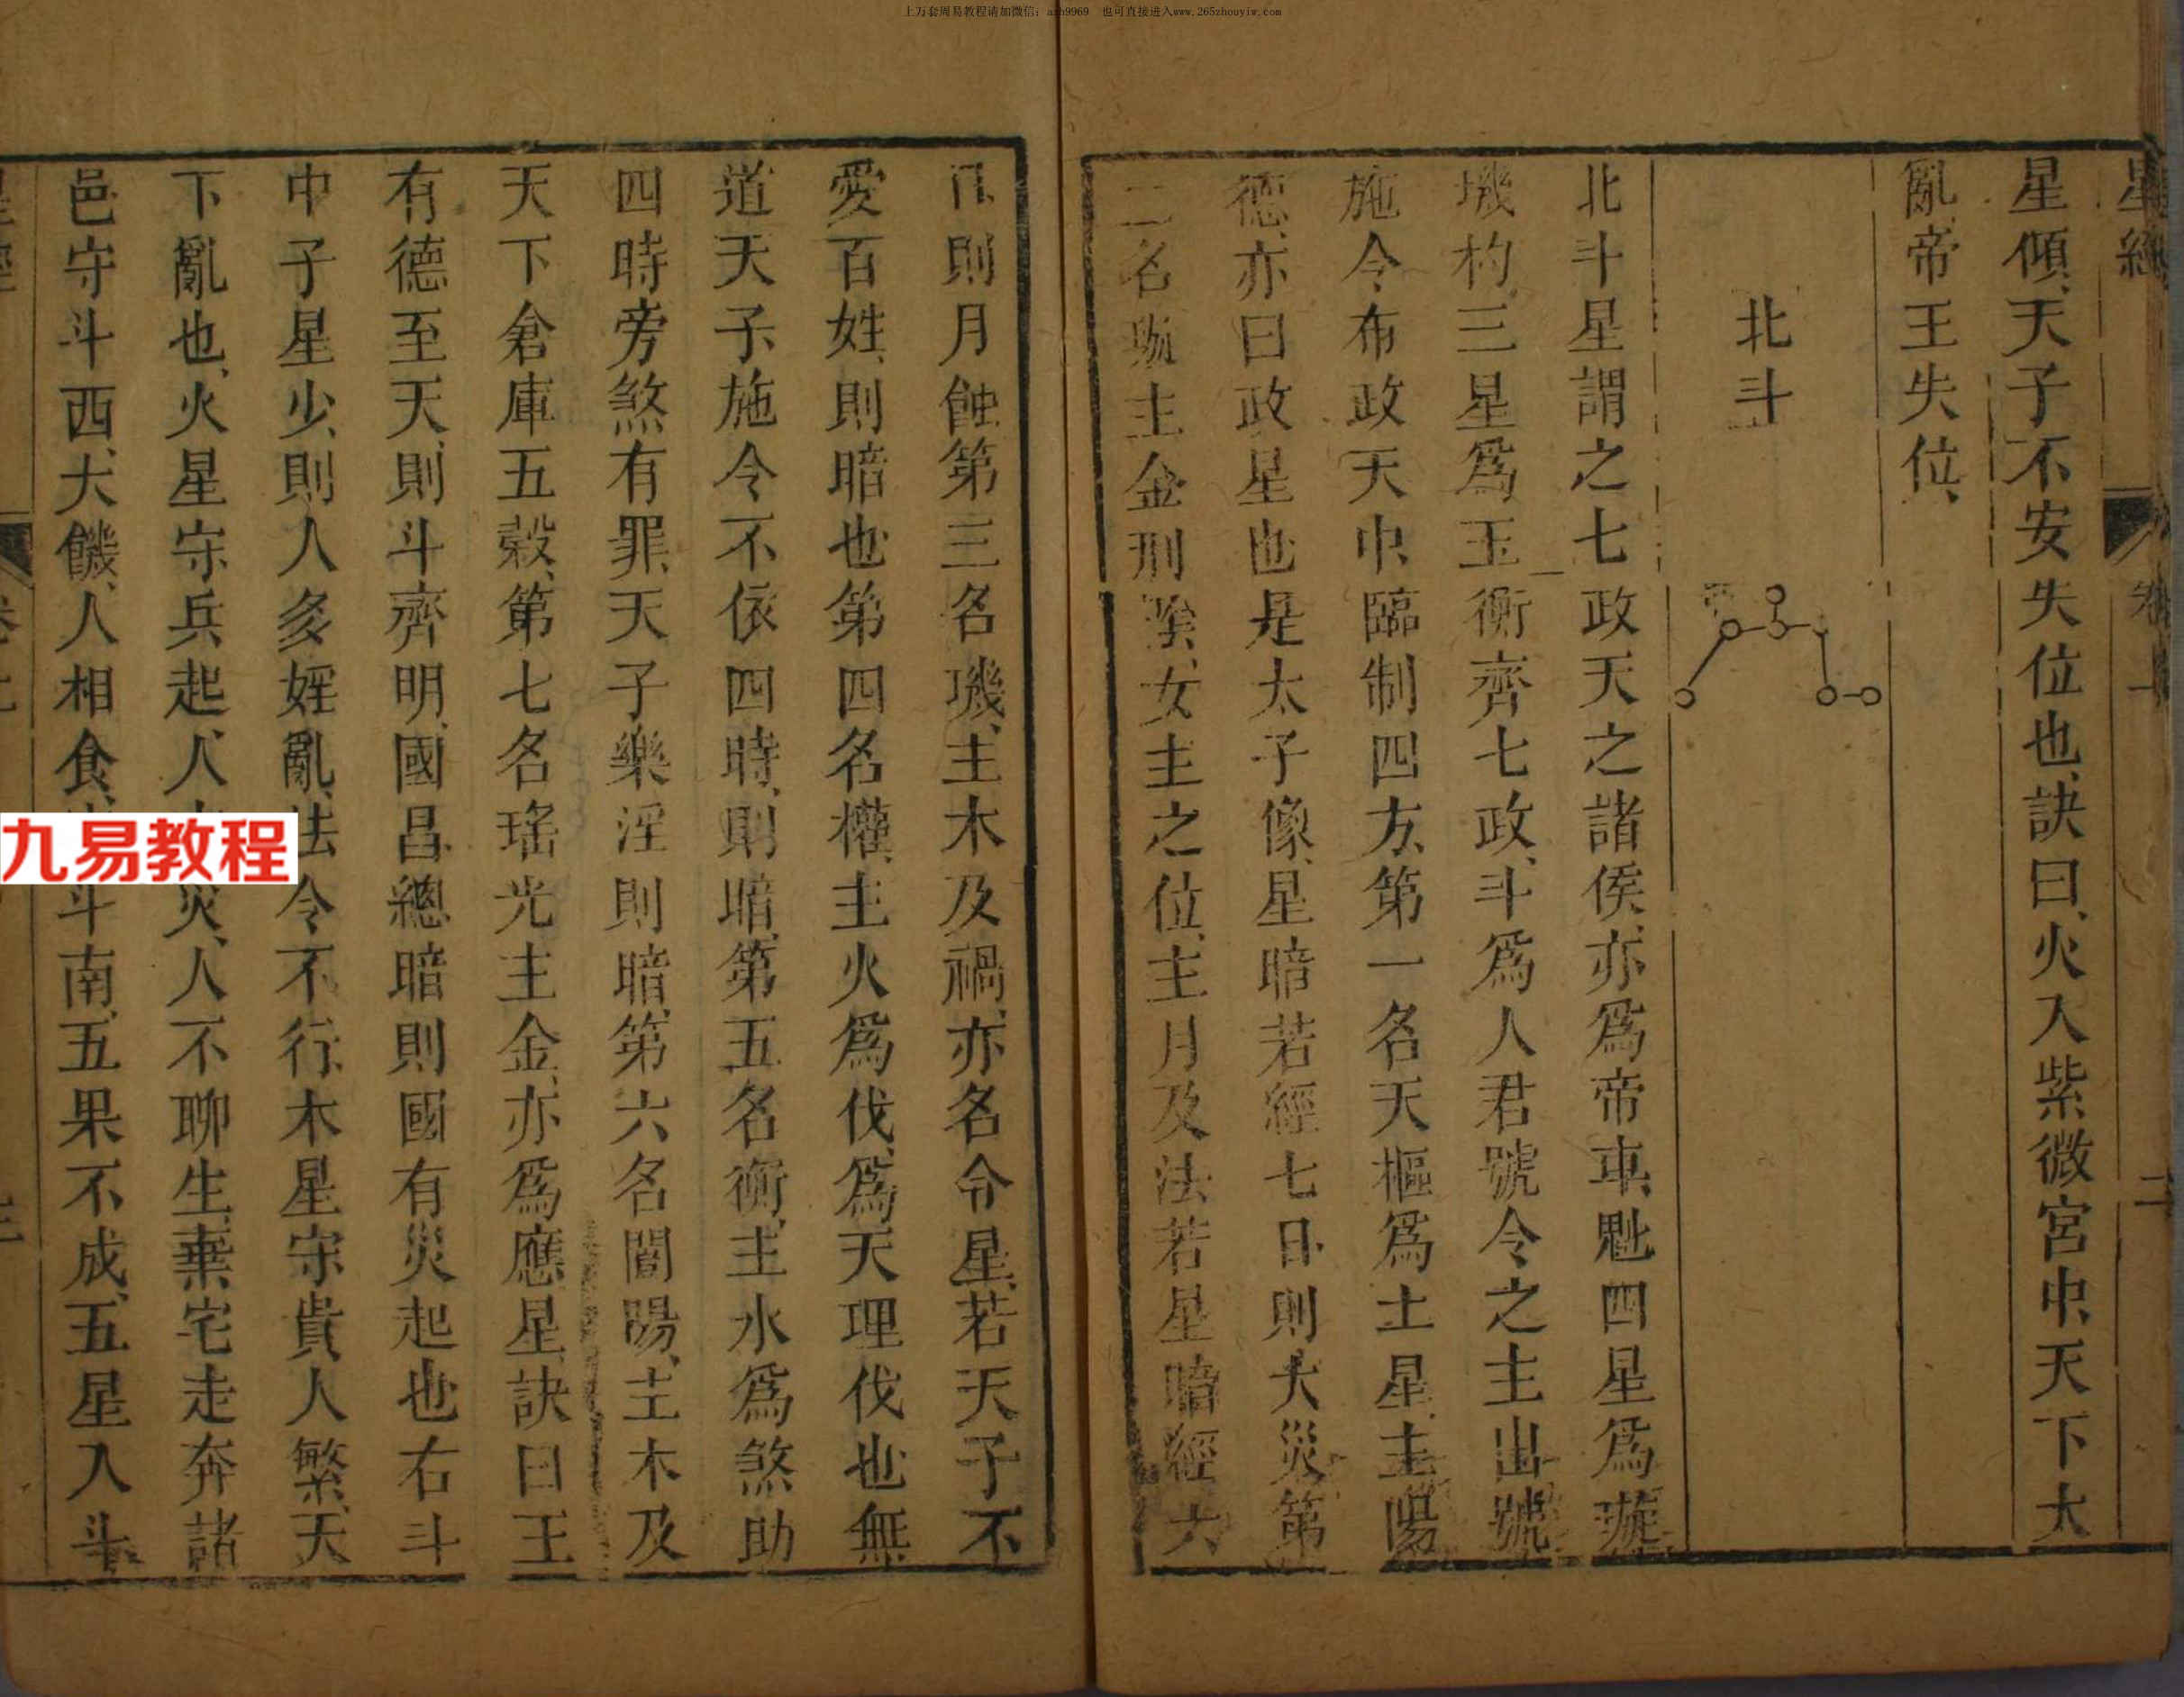 上万套周易教程请加微信：azh9969　也可直接进入www.265zhouyiw.com
星經
卷上
二
星傾、天子不安失位也、訣曰、火入紫微宮中、天下大
亂、帝王失位、
北斗
北斗星謂之七政天之諸侯、亦爲帝車、魁四星爲璇
璣杓三星爲玉衡齊七政、斗爲人君號令之主出號
施令、布政天中、臨制四方、第一名天樞爲土星、主陽
德、亦曰政星也是太子像、星暗若經七日、則大災第
二名璇主金刑陰、女主之位、主月及法若星暗經六
日則月蝕第三名璣、主木及禍、亦名令星、若天子不
愛百姓、則暗也第四名權、主火爲伐、爲天理伐也無
道天子施令不依四時、則暗、第五名衡、主水爲煞助
四時旁煞有罪、天子樂淫則暗、第六名闓陽、主木及
天下倉庫五穀、第七名瑤光主金、亦爲應星訣曰王
有德至天、則斗齊明、國昌總暗則國有災起也右斗
中子星少、則人多婬亂、法令不行、木星守貴人繁、天
下亂也、火星守兵起、人災、人不聊生、棄宅走奔諸
邑守斗西、大饑、人相食、斗南、五果不成、五星入斗
九易教程